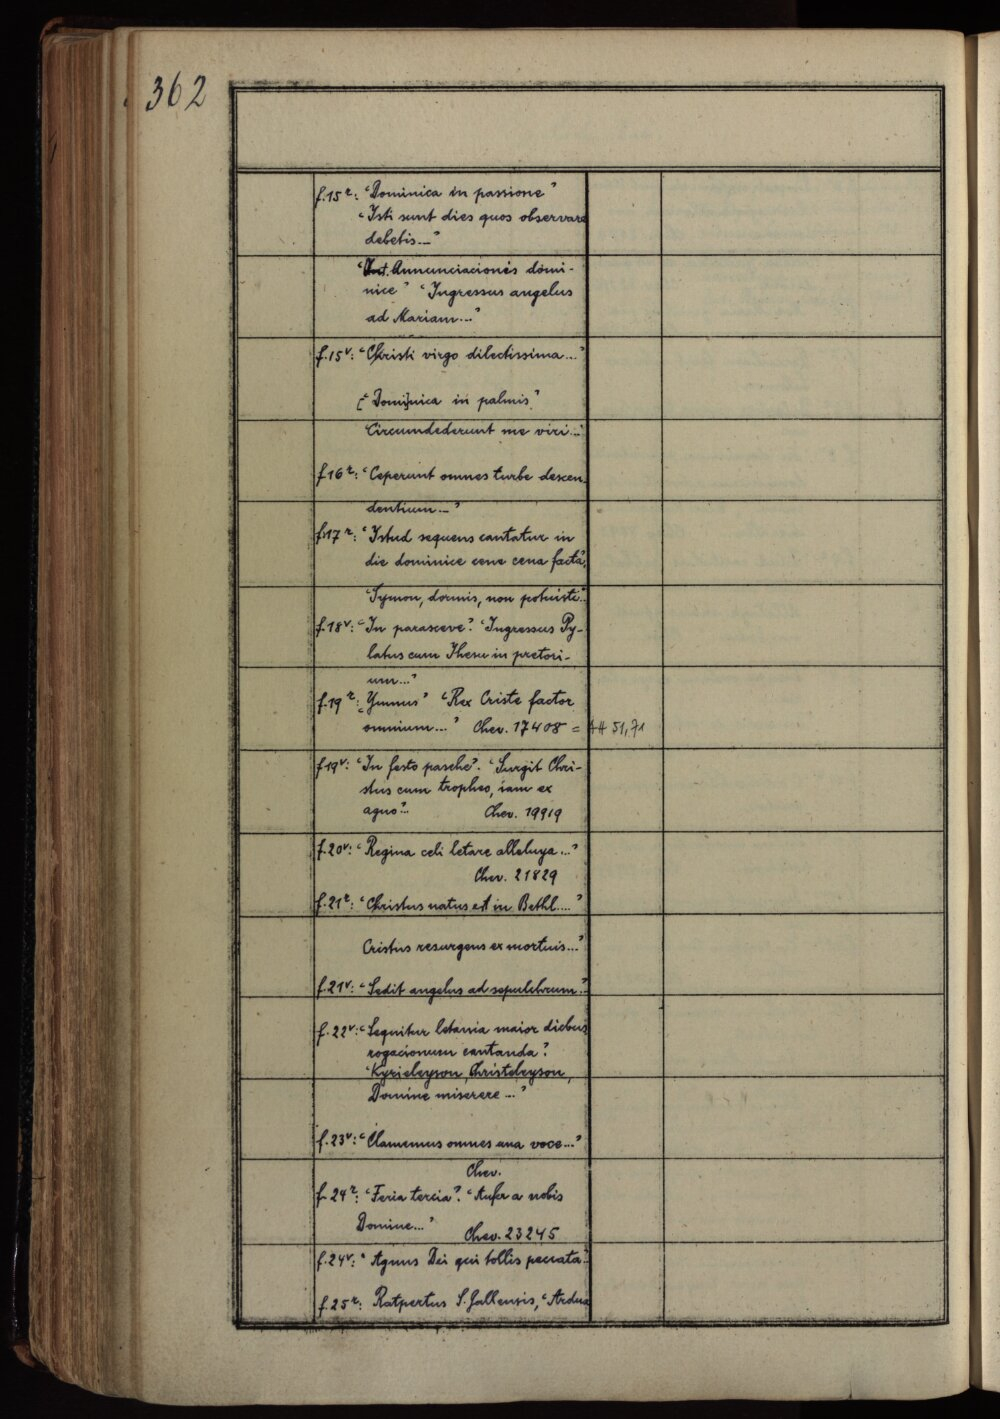 362
f.15r: "Dominica in passione"
"Isti sunt dies quos observare
debetis..."
"Annunciacionis domi-
nice" "Ingressus angelus
ad Mariam..."
f.15v: "Christi virgo dilectissima..."
[Domi]nica in palmis"
Circumdederunt me viri..."
f.16r: "Ceperunt omnes turbe descen
dentium..."
f.17r: "Istud sequens cantatur in
die dominice cene cena facta"
"Symon, dormis, non potuisti..."
f.18v: "In parasceve". "Ingressus Py-
latus cum Ihesu in pretori-
um..."
f.19r: Ymnus" "Rex Criste factor
omnium..." Chev. 17408 = AH 51,71
f.19v: "In festo pasche". "Surgit Chri-
stus cum tropheo, iam ex
agno"... Chev. 19919
f.20v: "Regina celi letare alleluya..."
Chev. 21829
f.21r: "Christus natus est in Bethl...."
Cristus resurgens ex mortuis..."
f.21v: "Sedit angelus ad sepulchrum..."
f.22v: "Sequitur letania maior diebus
rogacionum cantanda".
"Kyrieleyson, Christeleyson,
Domine miserere..."
f.23v: "Clamemus omnes una voce..."
Chev.
f.24r: "Feria tercia". "Aufer a nobis
Domine..." Chev. 23245
f.24v: "Agnus Dei qui tollis peccata..."
f.25r: Ratpertus S. Gallensis, "Ardua